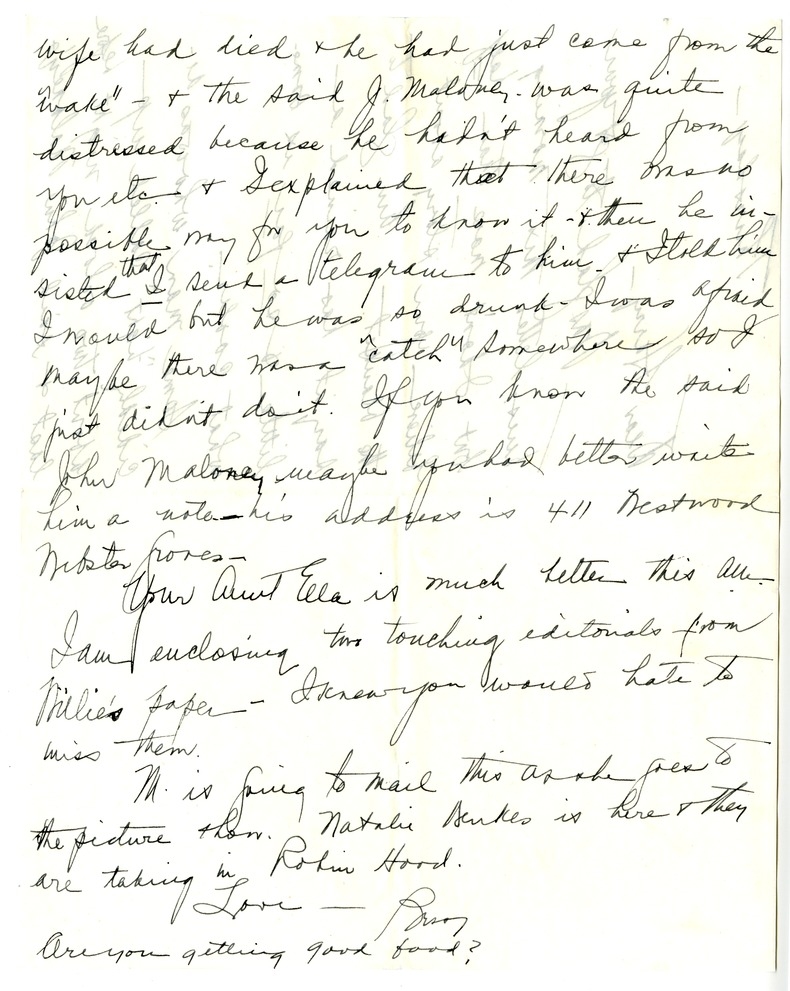 wife had died & he had just come from the
"wake" - & the said J. Maloney - was quite
distressed because he hadn't heard from
you etc. & I explained that there was no
possible way for you to know it - & then he in-
sisted that I send a telegram to him - & I told him
I would but he was so drunk - I was afraid
maybe there was a "catch" somewhere so I
just didn't do it. If you know the said
John Maloney maybe you had better write
him a note - his address is 411 Westwood
Webster Groves -
Your Aunt Ella is much better this
I am enclosing two touching editorials from
Willie's paper - I knew you would hate to
miss them.
M. is going to mail this as she goes to
the picture show. Natalie is here & they
are taking in Robin Hood.
Love -
Are you getting good food?